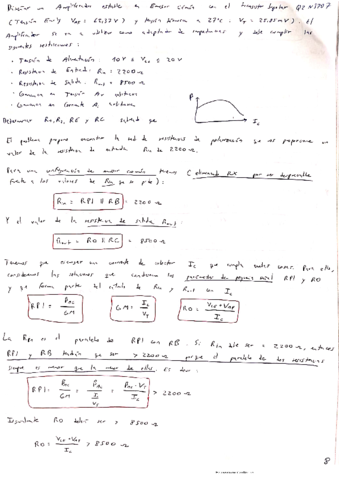 Diseñar un Amplificador estable en Emisor Común con el transistor bipolar Q2N3707
(Tensión Early VAF = 62,37 V) y tensión térmica a 27°C = VT = 25,85 mV). El
Amplificador se va a utilizar como adaptador de impedancias y debe cumplir las
siguientes restricciones:
· Tensión de Alimentación: 10V ≤ Vcc ≤ 20V
· Resistencia de Entrada: Rin = 2200 Ω
· Resistencia de Salida: Rout = 8500 Ω
· Ganancia en Tensión Av
· Ganancia en Corriente Ai
P
Ic
Determinar R1, R2, RE y RC sabiendo que
El problema propone encontrar la red de resistencias de polarización que nos proporcione un
valor de la resistencia de entrada Rin de 2200 Ω.
Para una configuración de emisor común tenemos (
frente a los valores de
Rin = RPI ∥ RB = 2200 Ω
Y el valor de la resistencia de salida Rout:
Rout = RO ∥ RC = 8500 Ω
Tenemos que escoger una corriente de colector Ic que cumpla ambas cosas. Para ello,
consideramos las relaciones que conducen los parámetros de pequeña señal RPI y RO
y que forma parte del cálculo de Rin y Rout con Ic
RPI = βac / GM
GM = Ic / VT
RO = VCE + VAF / Ic
La Rin es el paralelo de RPI con RB. Si Rin debe ser = 2200 Ω, entonces
RPI y RB tendrán que ser > 2200 Ω porque el paralelo de dos resistencias
siempre es menor que la menor de ellas. Es decir:
RPI = βac / GM = βac / Ic / VT = βac · VT / Ic > 2200 Ω
Igualmente RO deberá ser > 8500 Ω
RO = VCE + VAF / Ic > 8500 Ω
8